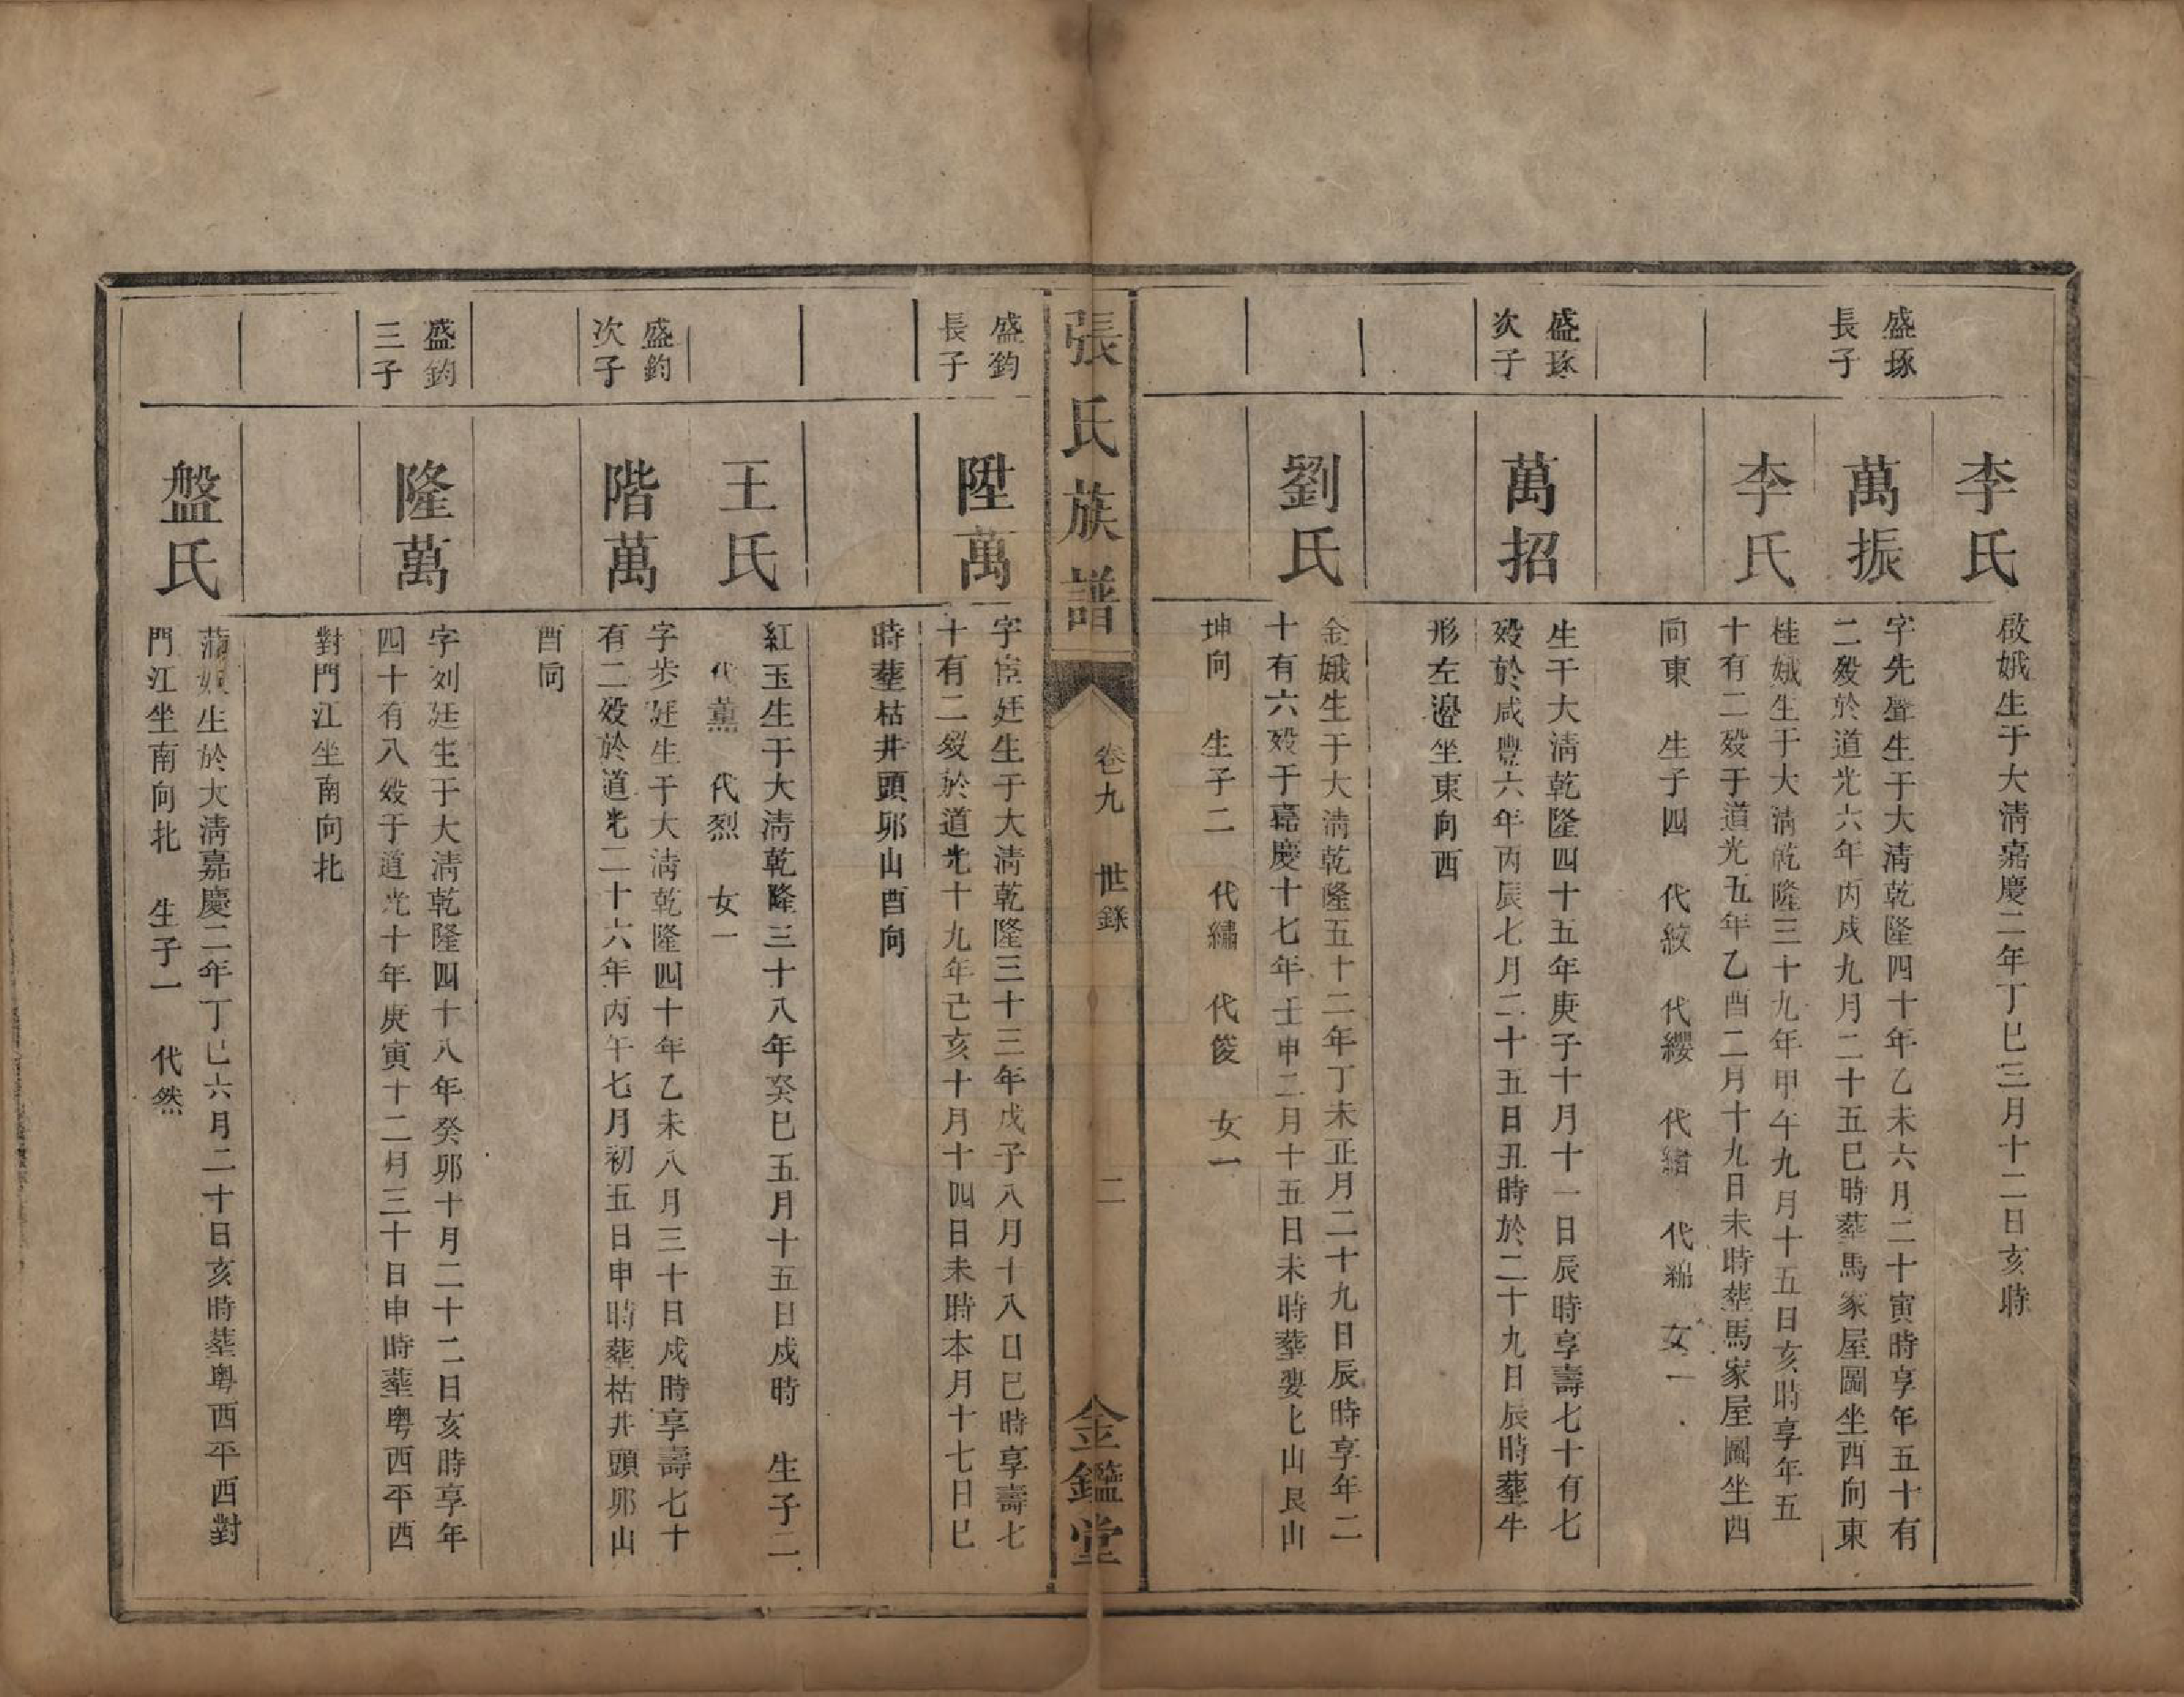 李氏
啟娥生于大淸嘉慶二年丁巳三月十二日亥時
盛琢
長子
萬振
字先聲生于大淸乾隆四十年乙未六月二十寅時享年五十有
二歿於道光六年丙戌九月二十五巳時塟馬家屋圖坐西向東
李氏
桂娥生于大淸乾隆三十九年甲午九月十五日亥時享年五
十有二歿于道光五年乙酉二月十九日未時塟馬家屋圖坐西
向東　生子四　代紋　代纓　代緒　代繃　女一
盛琢
次子
萬招
生于大淸乾隆四十五年庚子十月十一日辰時享壽七十有七
歿於咸豐六年丙辰七月二十五日丑時於二十九日辰時塟牛
形左邊坐東向西
劉氏
金娥生于大淸乾隆五十二年丁未正月二十九日辰時享年二
十有六歿于嘉慶十七年壬申二月十五日未時塟婁七山艮山
坤向　生子二　代繡　代俊　女一
張氏族譜
卷九　世錄
二
金鑑堂
盛鈞
長子
陞萬
字宦廷生于大淸乾隆三十三年戊子八月十八日巳時享壽七
十有二歿於道光十九年己亥十月十四日未時本月十七日巳
時塟枯井頭卯山酉向
王氏
紅玉生于大淸乾隆三十八年癸巳五月十五日戍時　生子二
代薰　代烈　女一
盛鈞
次子
階萬
字步廷生于大淸乾隆四十年乙未八月三十日戍時享壽七十
有二歿於道光二十六年丙午七月初五日申時塟枯井頭卯山
酉向
盛鈞
三子
隆萬
字列廷生于大淸乾隆四十八年癸卯十月二十二日亥時享年
四十有八歿于道光十年庚寅十二月三十日申時塟粤西平西
對門江坐南向北
盤氏
蒲娘生於大淸嘉慶二年丁巳六月二十日亥時塟粤西平西對
門江坐南向北　生子一　代然